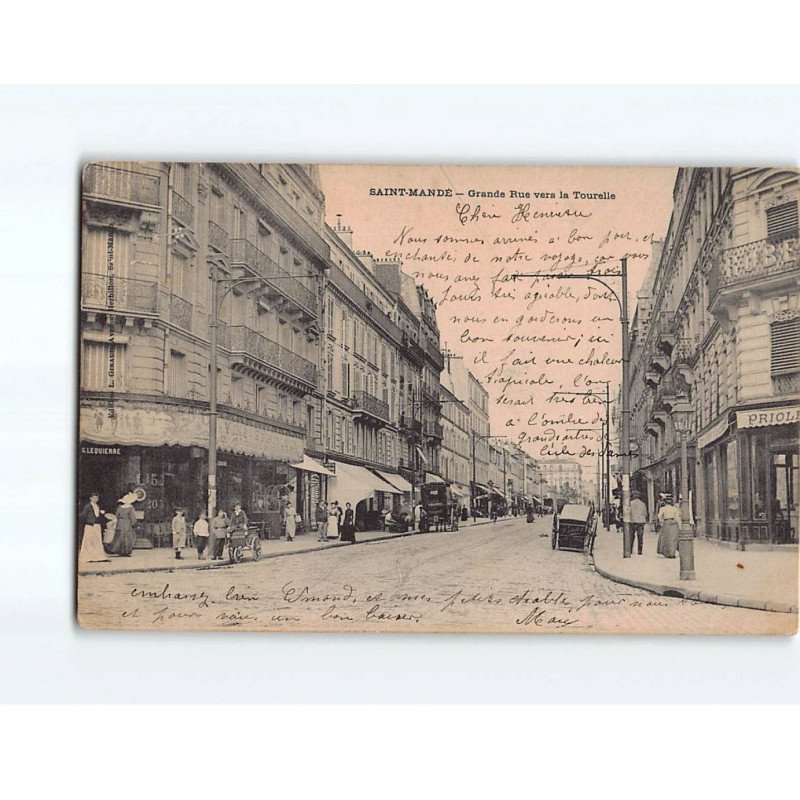 SAINT-MANDÉ — Grande Rue vers la Tourelle
Chère Henriette
Nous sommes arrivés à bon port, et
enchantés de notre voyage, car vous
nous avez fait passer trois
jours très agréable, dont
nous en garderons un
bon souvenir; ici
il fait une chaleur
tropicale, l'on
serait très bien
à l'ombre des
Grands arbres
embrassez bien Edmond, et mes petits diable pour nous
et pour vous un bon baiser.
G. LEQVIERRE
PRIOL
Edition L. Giraux